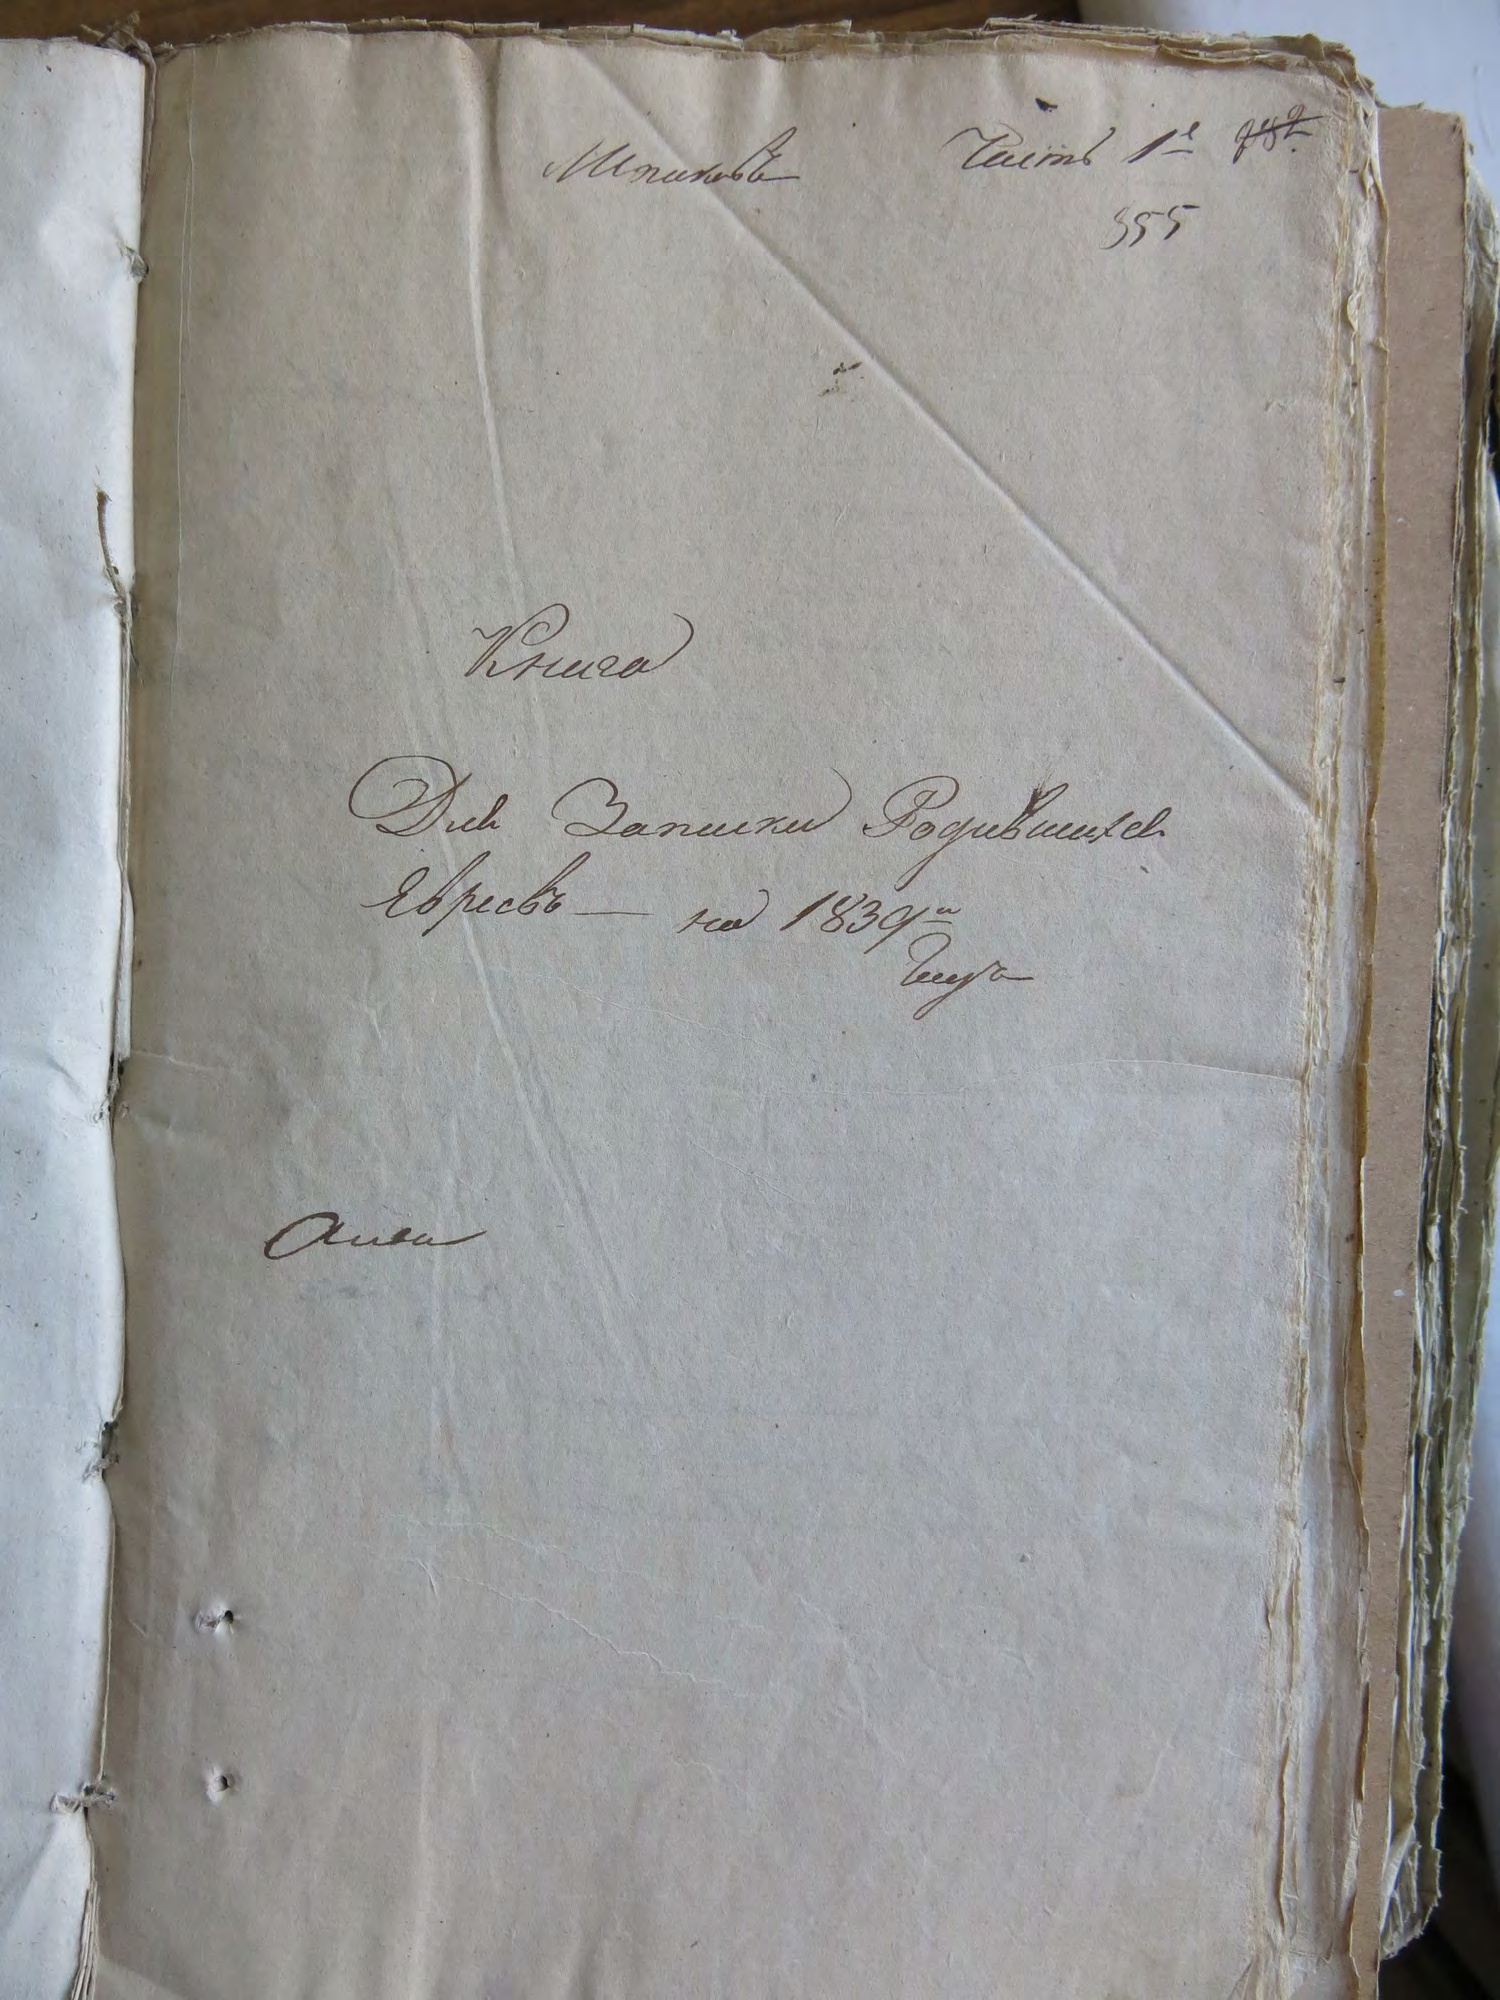 Шпиковъ Часть 1я
355
Книга
Для Записки Родившихся
Евреевъ — на 1839й
Годъ